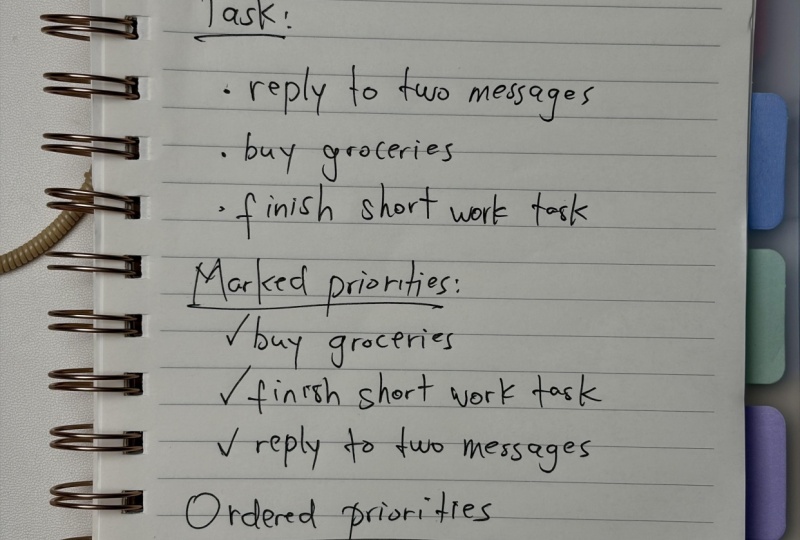 Task:
· reply to two messages
· buy groceries
· finish short work task
Marked priorities:
✓ buy groceries
✓ finish short work task
✓ reply to two messages
Ordered priorities